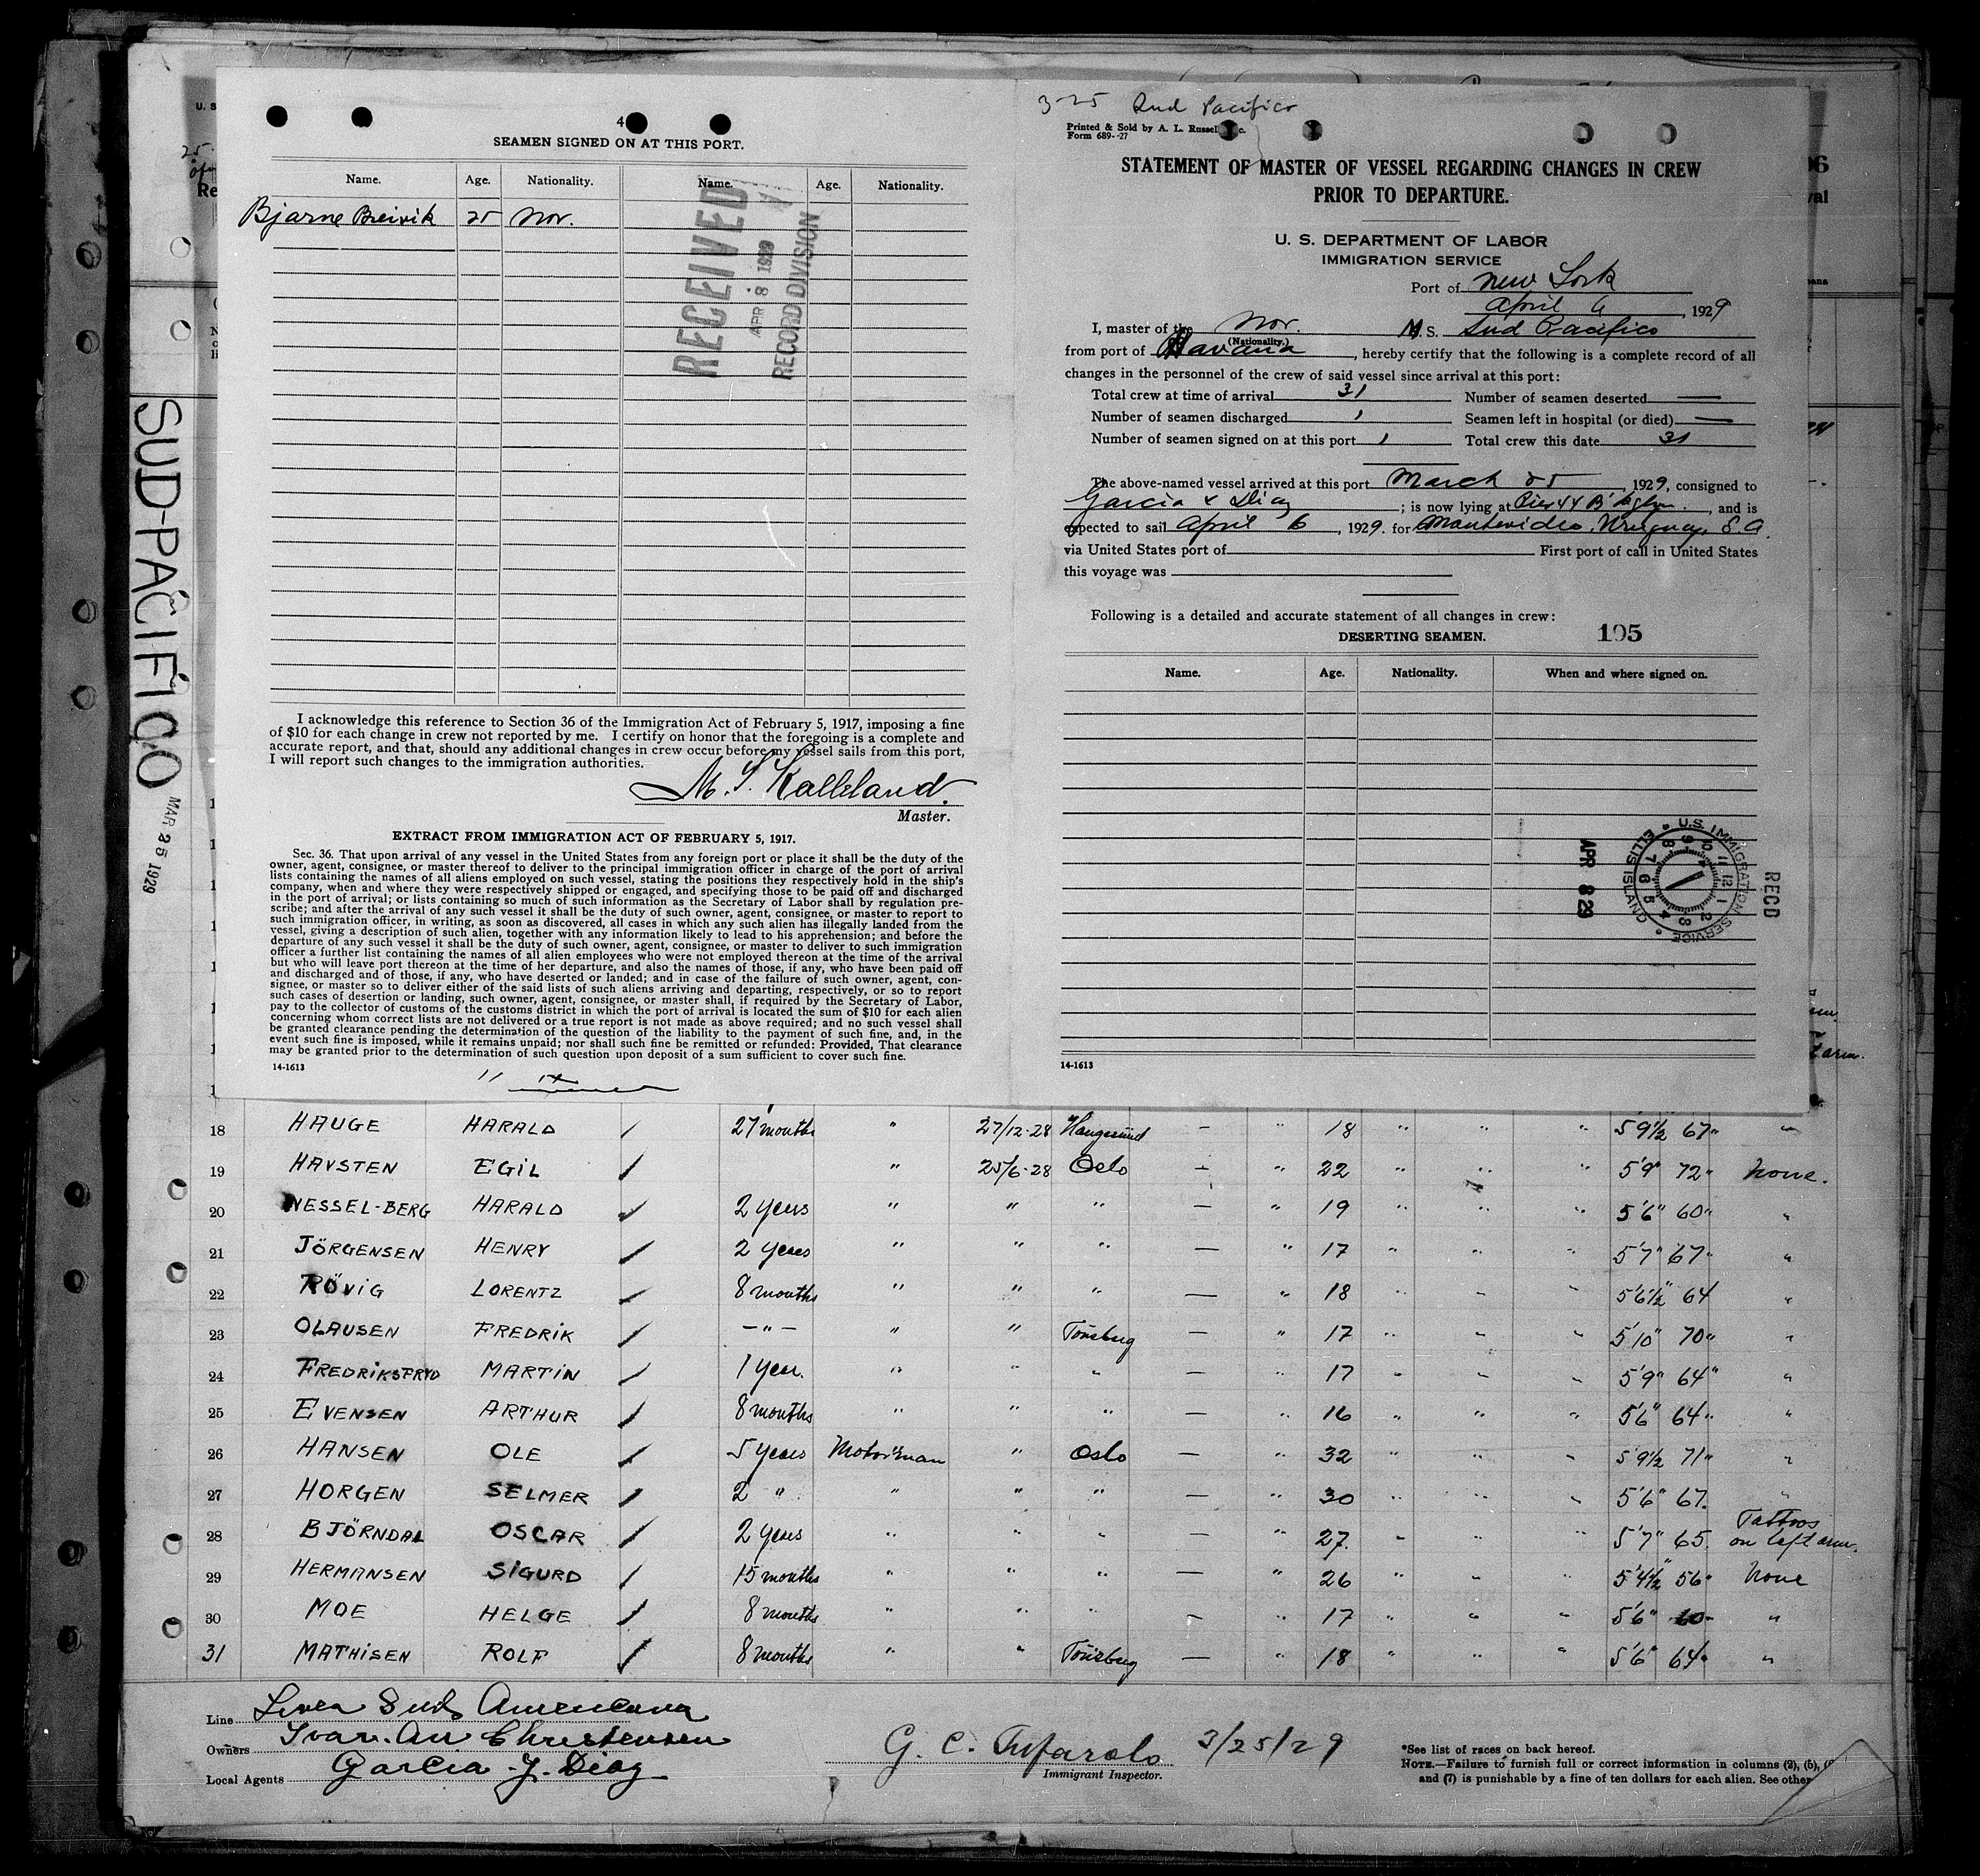 4
SEAMEN SIGNED ON AT THIS PORT.
Name. Age. Nationality. Name. Age. Nationality.
Bjarne Breivik 25 Nor.
RECEIVED
APR 8 1929
RECORD DIVISION
I acknowledge this reference to Section 36 of the Immigration Act of February 5, 1917, imposing a fine
of $10 for each change in crew not reported by me. I certify on honor that the foregoing is a complete and
accurate report, and that, should any additional changes in crew occur before my vessel sails from this port,
I will report such changes to the immigration authorities.
Master.
EXTRACT FROM IMMIGRATION ACT OF FEBRUARY 5, 1917.
Sec. 36. That upon arrival of any vessel in the United States from any foreign port or place it shall be the duty of the
owner, agent, consignee, or master thereof to deliver to the principal immigration officer in charge of the port of arrival
lists containing the names of all aliens employed on such vessel, stating the positions they respectively hold in the ship's
company, when and where they were respectively shipped or engaged, and specifying those to be paid off and discharged
in the port of arrival; or lists containing so much of such information as the Secretary of Labor shall by regulation pre-
scribe; and after the arrival of any such vessel it shall be the duty of such owner, agent, consignee, or master to report to
such immigration officer, in writing, as soon as discovered, all cases in which any such alien has illegally landed from the
vessel, giving a description of such alien, together with any information likely to lead to his apprehension; and before the
departure of any such vessel it shall be the duty of such owner, agent, consignee, or master to deliver to such immigration
officer a further list containing the names of all alien employees who were not employed thereon at the time of the arrival
but who will leave port thereon at the time of her departure, and also the names of those, if any, who have been paid off
and discharged and of those, if any, who have deserted or landed; and in case of the failure of such owner, agent, con-
signee, or master so to deliver either of the said lists of such aliens arriving and departing, respectively, or so to report
such cases of desertion or landing, such owner, agent, consignee, or master shall, if required by the Secretary of Labor,
pay to the collector of customs of the customs district in which the port of arrival is located the sum of $10 for each alien
concerning whom correct lists are not delivered or a true report is not made as above required; and no such vessel shall
be granted clearance pending the determination of the question of the liability to the payment of such fine, and, in the
event such fine is imposed, while it remains unpaid; nor shall such fine be remitted or refunded: Provided, That clearance
may be granted prior to the determination of such question upon deposit of a sum sufficient to cover such fine.
14-1613
3-25 Sud Pacifico
Printed & Sold by A. L. Russell
Form 689-27
STATEMENT OF MASTER OF VESSEL REGARDING CHANGES IN CREW
PRIOR TO DEPARTURE.
U. S. DEPARTMENT OF LABOR
IMMIGRATION SERVICE
Port of New York
April 6, 1929
I, master of the Nor. M. S. Sud Pacifico
(Nationality.)
from port of Havana, hereby certify that the following is a complete record of all
changes in the personnel of the crew of said vessel since arrival at this port:
Total crew at time of arrival 31 Number of seamen deserted —
Number of seamen discharged 1 Seamen left in hospital (or died) —
Number of seamen signed on at this port 1 Total crew this date 31
The above-named vessel arrived at this port March 25, 1929, consigned to
Garcia & Diaz; is now lying at Pier 44 B'klyn., and is
expected to sail April 6, 1929. for Montevideo, Uruguay, S. A.
via United States port of First port of call in United States
this voyage was
Following is a detailed and accurate statement of all changes in crew:
DESERTING SEAMEN. 195
Name. Age. Nationality. When and where signed on.
U.S. IMMIGRATION SERVICE • ELLIS ISLAND •
RECD
APR 8 29
14-1613
SUD-PACIFICO
MAR 25 1929
18 HAUGE HARALD 27 months " 27/12-28 Haugesund — " 18 " " " 5'9½ 67" "
19 HAVSTEN EGIL " 25/6-28 Oslo — " 22 " " " 5'9" 72" None.
20 NESSEL-BERG HARALD 2 years " " " — " 19 " " " 5'6" 60" "
21 JÖRGENSEN HENRY 2 years " " " — " 17 " " " 5'7" 67" "
22 RÖVIG LORENTZ 8 months " " " — " 18 " " " 5'6½" 64 "
23 OLAUSEN FREDRIK —"— " " Tönsberg — " 17 " " " 5'10" 70" "
24 FREDRIKSFRYD MARTIN 1 year. " " " — " 17 " " " 5'9" 64" "
25 EVENSEN ARTHUR 8 months " " " — " 16 " " " 5'6" 64" "
26 HANSEN OLE 5 years Motorman " Oslo — " 32 " " " 5'9½ 71" "
27 HORGEN SELMER 2 " " " " — " 30 " " " 5'6" 67. "
28 BJÖRNDAL OSCAR 2 years " " " — " 27. " " " 5'7" 65. Tattoos on left arm.
29 HERMANSEN SIGURD 15 months " " " — " 26 " " " 5'4½" 56" None
30 MOE HELGE 8 months " " " — " 17 " " " 5'6" 60 "
31 MATHISEN ROLF 8 months " " Tönsberg — " 18 " " " 5'6" 64" "
Line Linea Sud Americana
Owners Ivar. An Christensen
Local Agents Garcia y. Diaz
3/25/29
Immigrant Inspector.
*See list of races on back hereof.
NOTE.—Failure to furnish full or correct information in columns (2), (5), (
and (7) is punishable by a fine of ten dollars for each alien. See other